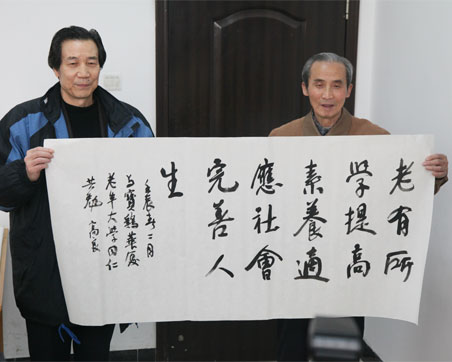 老有所
学提高
素養適
應社會
完善人
生
壬辰年二月
与寶鷄華厦
老年大学同仁
共勉